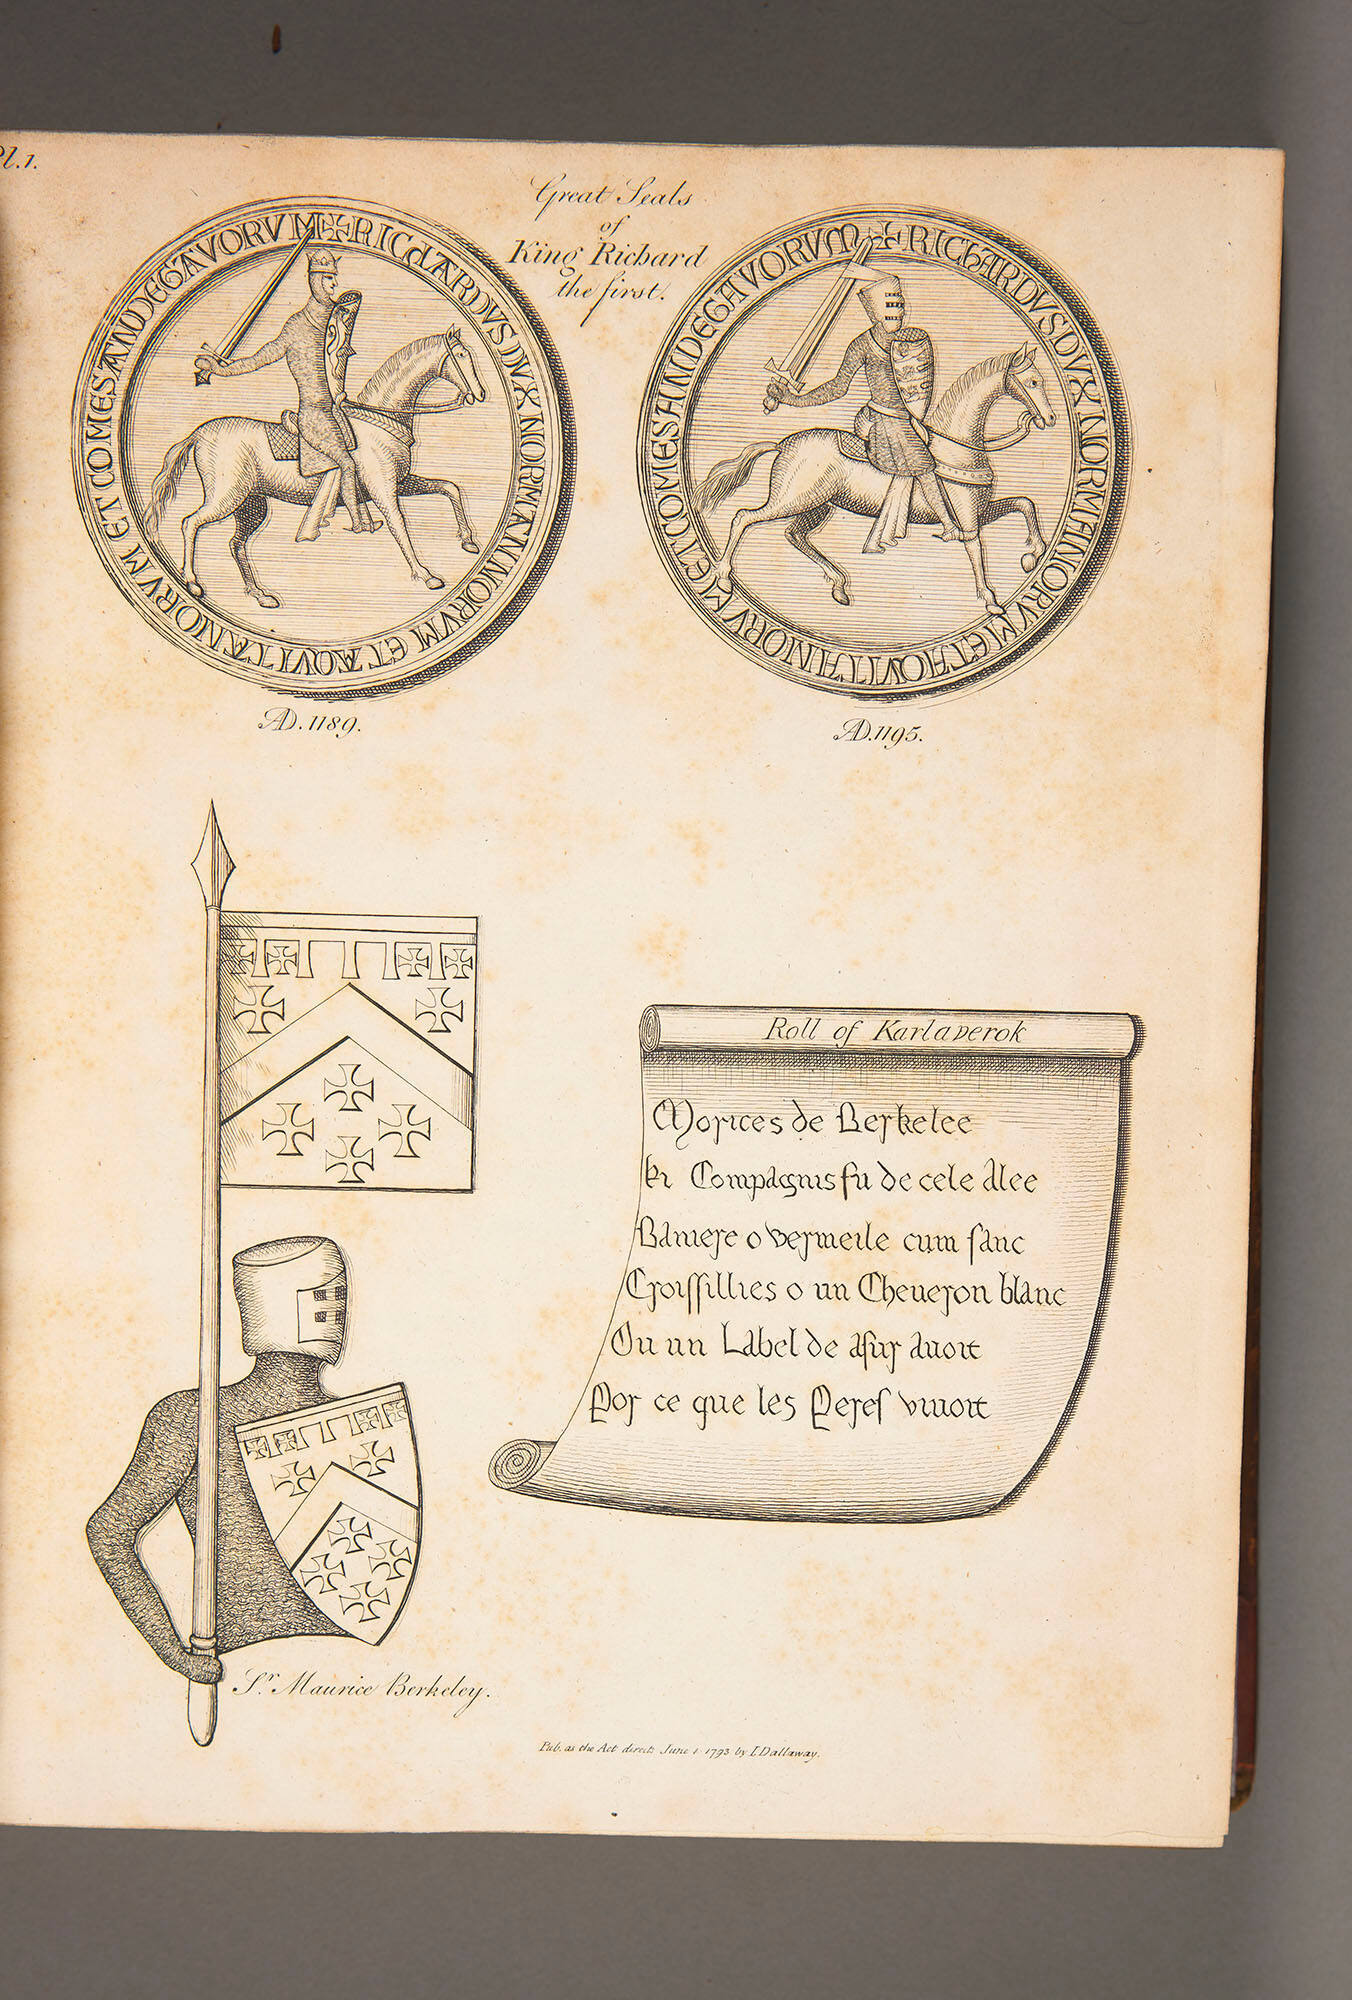 Pl.1.
Great Seals
of
King Richard
the first.
✠ RICARDVS DUX NORMANNORVM ET AQVITANORVM ET COMES ANDEGAVORVM
✠ RICHARDVS DVX NORMANORVM ET AQVITANIORVM ET COMES ANDEGAVORVM
AD. 1189.
AD. 1195.
Roll of Karlaverok
Morices de Berkelee
ki Compagnis fu de cele alee
Baniere o vermeile cum sanc
Croissillies o un Cheueron blanc
Ou un Label de asur auoit
Por ce que les Peres viuoit
Sr. Maurice Berkeley.
Pub. as the Act directs June 1 1793 by I. Dallaway.